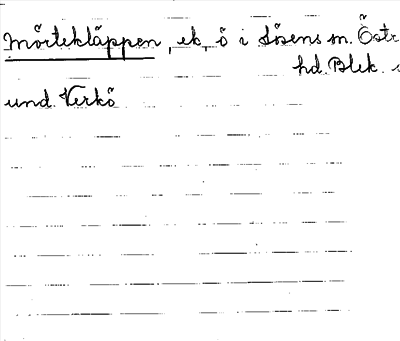 Mörtekläppen, ek. ö i Lösens sn. Östr
hd. Blek.
und. Verkö